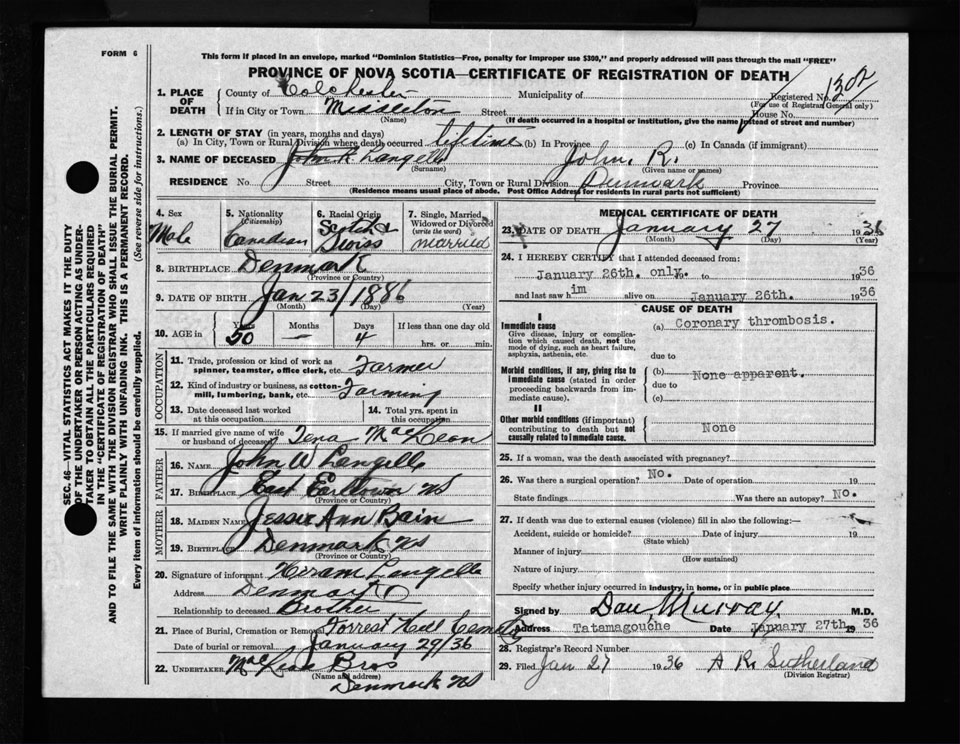 FORM 6
This form if placed in an envelope, marked "Dominion Statistics—Free, penalty for improper use $300," and properly addressed will pass through the mail "FREE"
PROVINCE OF NOVA SCOTIA—CERTIFICATE OF REGISTRATION OF DEATH
SEC. 46—VITAL STATISTICS ACT MAKES IT THE DUTY
OF THE UNDERTAKER OR PERSON ACTING AS UNDER-
TAKER TO OBTAIN ALL THE PARTICULARS REQUIRED
IN THE "CERTIFICATE OF REGISTRATION OF DEATH"
AND TO FILE THE SAME WITH THE DIVISION REGISTRAR WHO SHALL ISSUE THE BURIAL PERMIT.
WRITE PLAINLY WITH UNFADING INK. THIS IS A PERMANENT RECORD.
Every item of information should be carefully supplied. (See reverse side for instructions.)
1. PLACE OF DEATH County of Colchester Municipality of Registered No. 1302
(For use of Registrar General only)
If in City or Town Street House No.
(Name) (If death occurred in a hospital or institution, give the name instead of street and number)
2. LENGTH OF STAY (in years, months and days)
(a) In City, Town or Rural Division where death occurred lifetime (b) In Province (c) In Canada (if immigrant)
3. NAME OF DECEASED John R. Langelle John. R.
(Surname) (Given name or names)
RESIDENCE No Street City, Town or Rural Division Denmark Province
(Residence means usual place of abode. Post Office Address for residents in rural parts not sufficient)
4. Sex Male
5. Nationality (Citizenship) Canadian
6. Racial Origin Scotch & Swiss
7. Single, Married, Widowed or Divorced (write the word) married
8. BIRTHPLACE Denmark
(Province or Country)
9. DATE OF BIRTH Jan 23/1886
(Month) (Day) (Year)
10. AGE in Years 50 Months — Days 4 If less than one day old hrs. or min.
OCCUPATION
11. Trade, profession or kind of work as spinner, teamster, office clerk, etc. Farmer
12. Kind of industry or business, as cotton-mill, lumbering, bank, etc. Farming
13. Date deceased last worked at this occupation
14. Total yrs. spent in this occupation
15. If married give name of wife or husband of deceased Tena MacLeon
FATHER
16. NAME John W Langelle
17. BIRTHPLACE East Earltown NS
(Province or Country)
MOTHER
18. MAIDEN NAME Jessie Ann Bain
19. BIRTHPLACE Denmark NS
(Province or Country)
20. Signature of informant Hiram Langelle
Address Denmark
Relationship to deceased Brother
21. Place of Burial, Cremation or Removal Forrest Hill Cemetery
Date of burial or removal January 29/36
22. UNDERTAKER Bros
(Name and address)
Denmark NS
MEDICAL CERTIFICATE OF DEATH
23. DATE OF DEATH January 27 1936
(Month) (Day) (Year)
24. I HEREBY CERTIFY that I attended deceased from:
January 26th. only. to 1936
and last saw him alive on January 26th. 1936
CAUSE OF DEATH
I
Immediate cause
Give disease, injury or complication which caused death, not the mode of dying, such as heart failure, asphyxia, asthenia, etc.
(a) Coronary thrombosis.
due to
Morbid conditions, if any, giving rise to immediate cause (stated in order proceeding backwards from immediate cause).
(b) None apparent.
due to
(c)
II
Other morbid conditions (if important) contributing to death but not causally related to immediate cause.
None
25. If a woman, was the death associated with pregnancy?
26. Was there a surgical operation? No. Date of operation 19
State findings Was there an autopsy? No.
27. If death was due to external causes (violence) fill in also the following:—
Accident, suicide or homicide? Date of injury 19
(State which)
Manner of injury
(How sustained)
Nature of injury
Specify whether injury occurred in industry, in home, or in public place
Signed by Dan Murray M.D.
Address Tatamagouche Date January 27th. 1936
28. Registrar's Record Number
29. Filed Jan 27 1936 A R Sutherland
(Division Registrar)